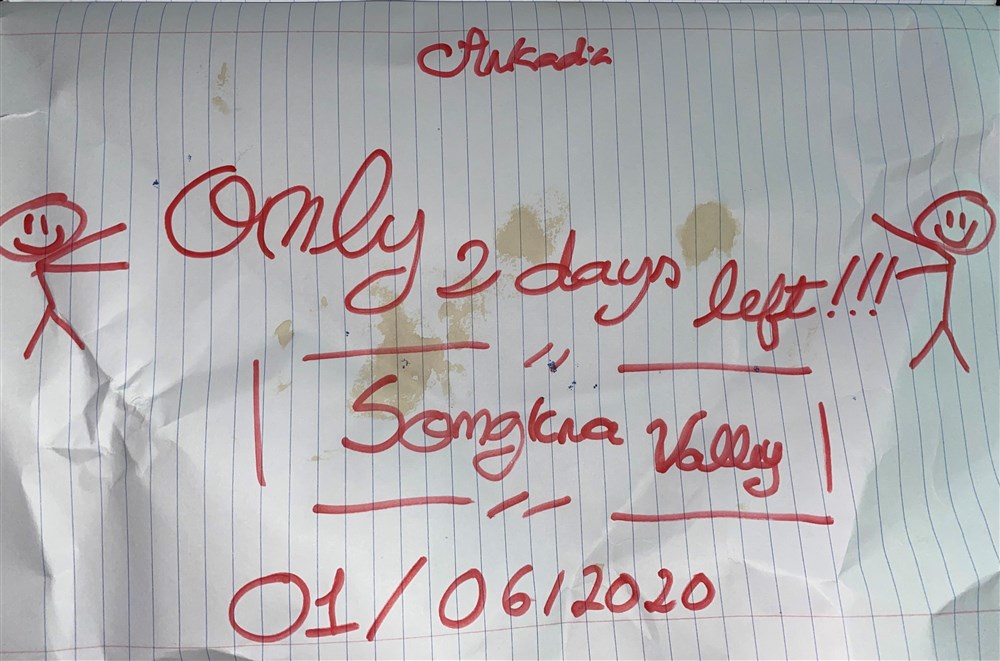 Arkadia
Only 2 days left!!!
Songkra Valley
01/06/2020